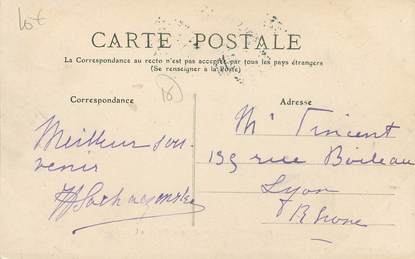 10€
CARTE POSTALE
La Correspondance au recto n'est pas acceptée par tous les pays étrangers
(Se renseigner à la Poste)
Correspondance
Adresse
Meilleur sou-
venir
Mr Vincent
135 rue Boileau
Lyon
Rhone